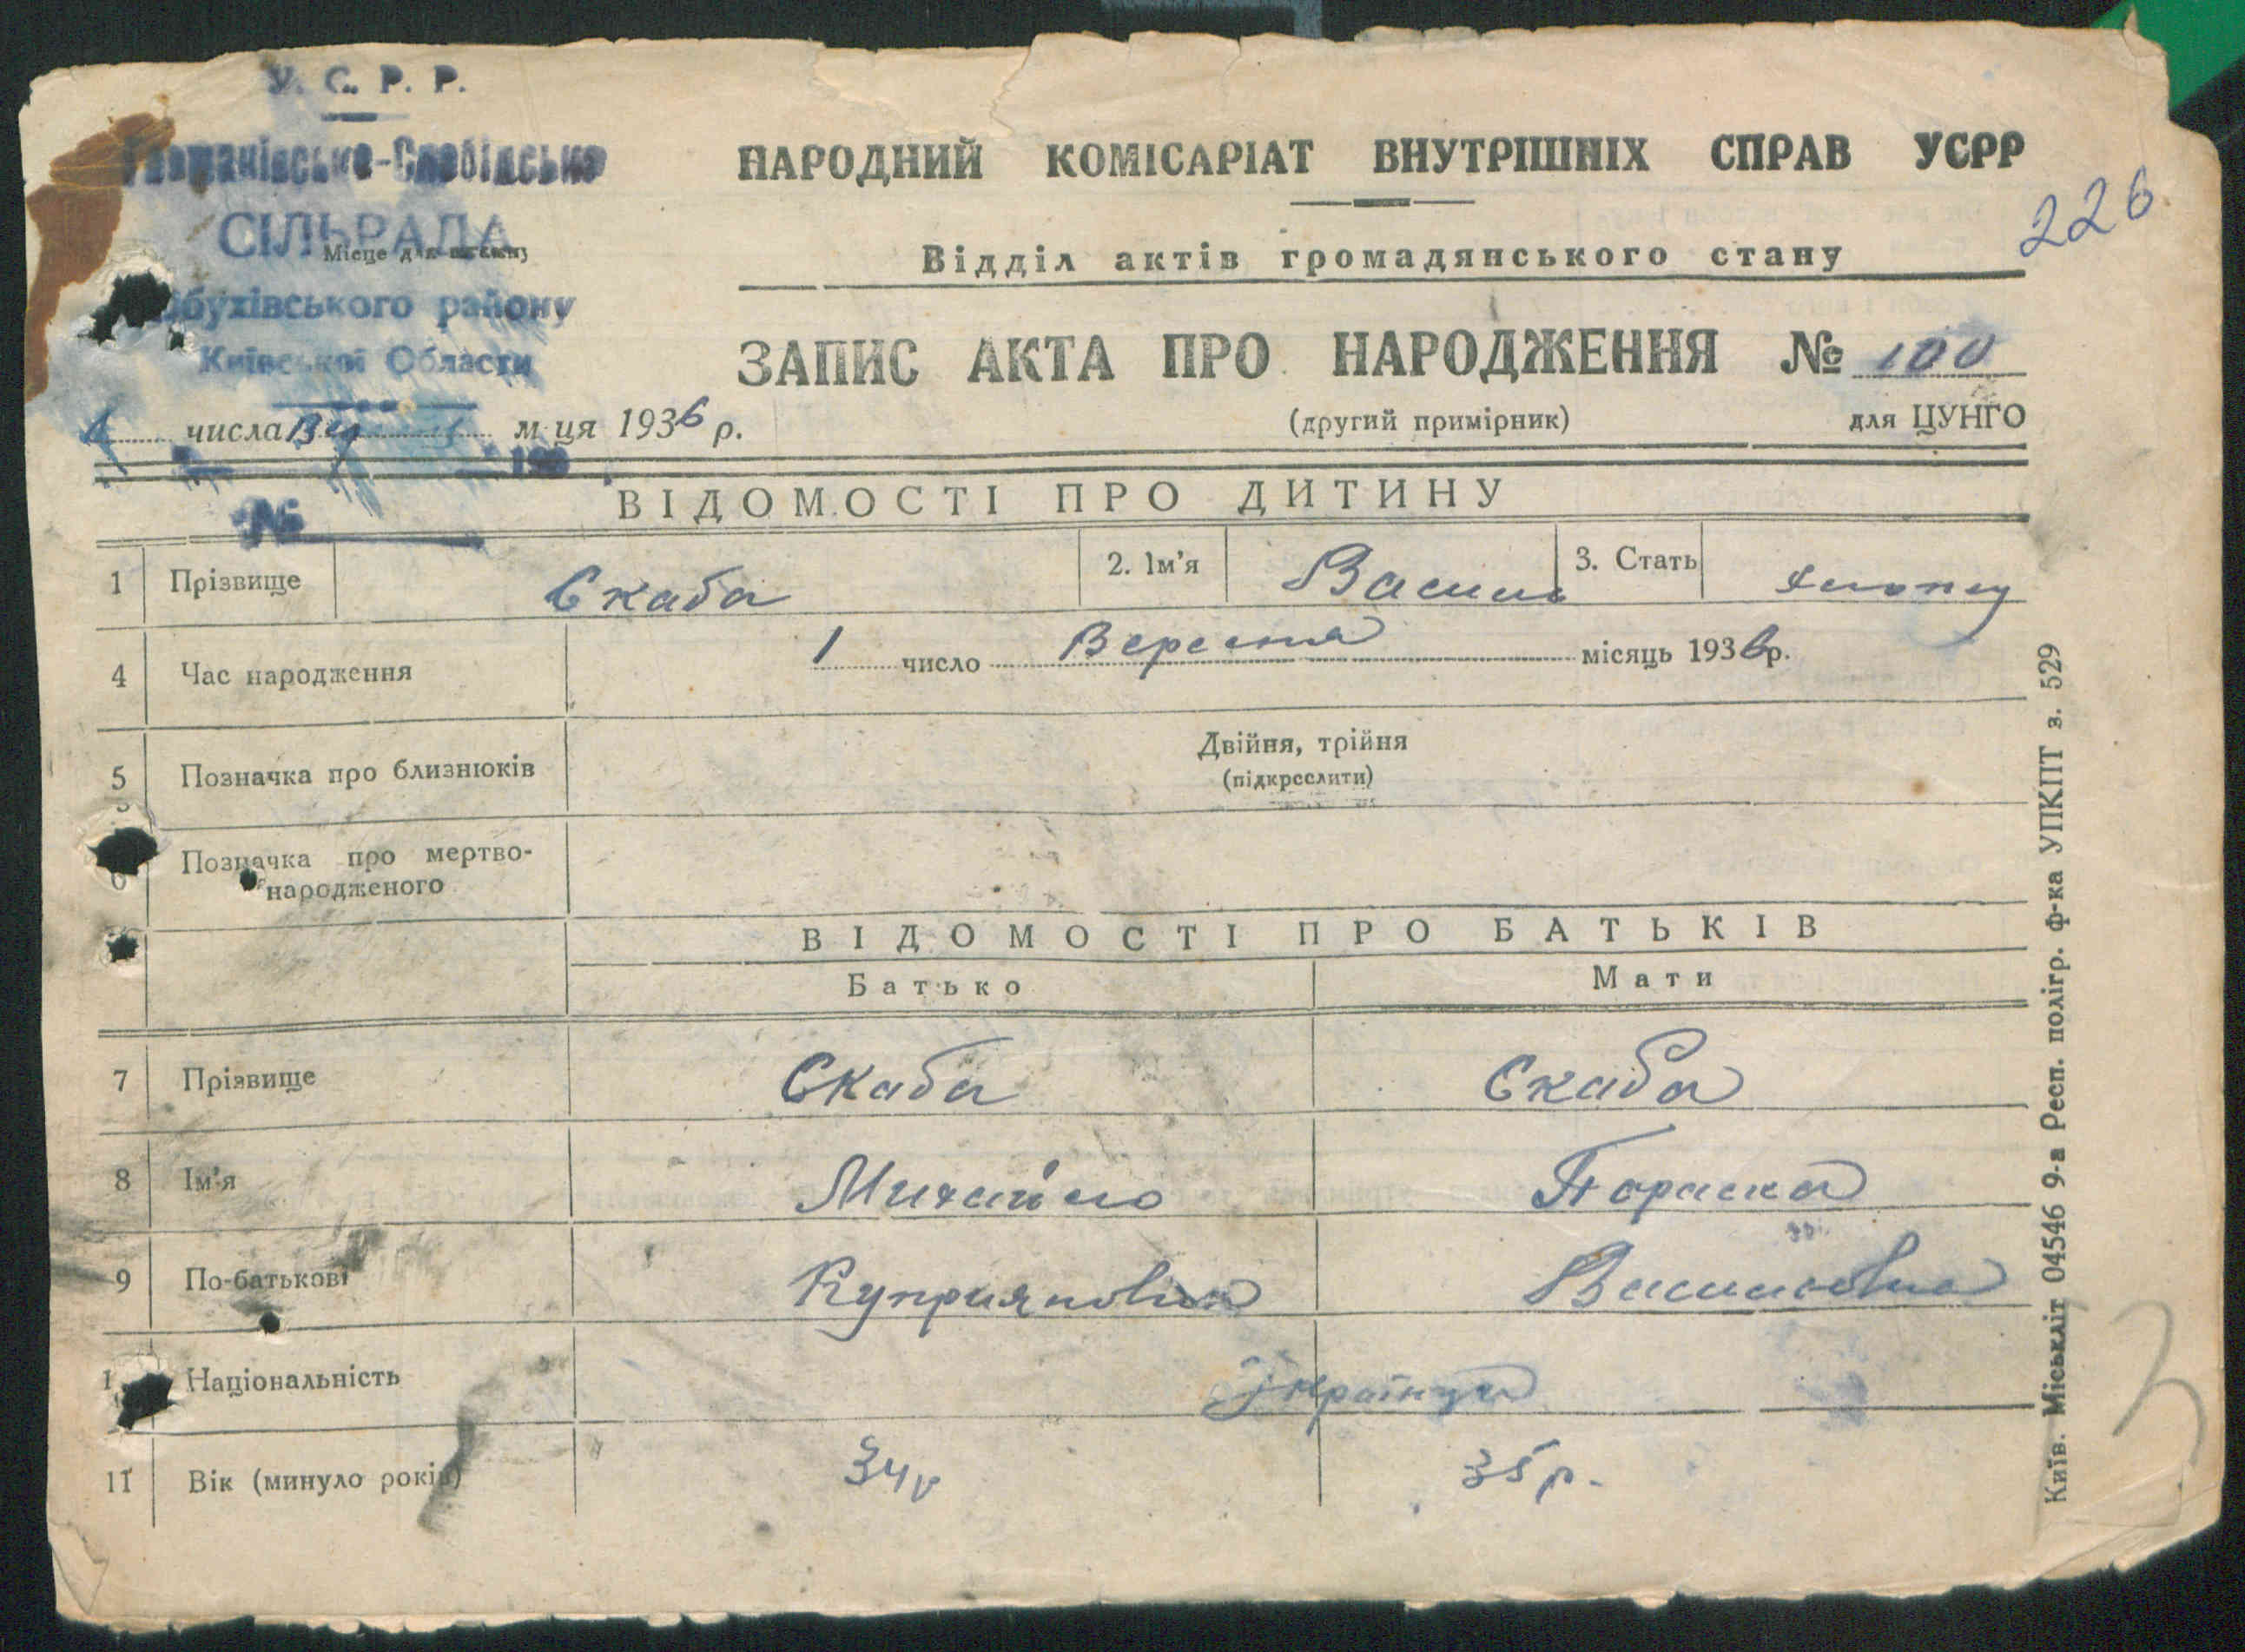 У. С. Р. Р.
Германівсько-Слобідська
СІЛЬРАДА
Місце для штампу
Обухівського району
Київської Области
числа м-ця 1936 р.
№
НАРОДНИЙ КОМІСАРІАТ ВНУТРІШНІХ СПРАВ УСРР
226
Відділ актів громадянського стану
ЗАПИС АКТА ПРО НАРОДЖЕННЯ № 100
(другий примірник) для ЦУНГО
ВІДОМОСТІ ПРО ДИТИНУ
1 Прізвище Скаба 2. Ім'я Василь 3. Стать
4 Час народження 1 число Вересня місяць 1936 р.
5 Позначка про близнюків Двійня, трійня
(підкреслити)
6 Позначка про мертво-
народженого
ВІДОМОСТІ ПРО БАТЬКІВ
Батько Мати
7 Прізвище Скаба Скаба
8 Ім'я Михайло Параска
9 По-батькові Куприянович Василовна
10 Національність Українци
11 Вік (минуло років) 34 р 35 р.
Київ. Міськліт 04546 9-а Респ. полігр. ф-ка УПКПТ з. 529
3